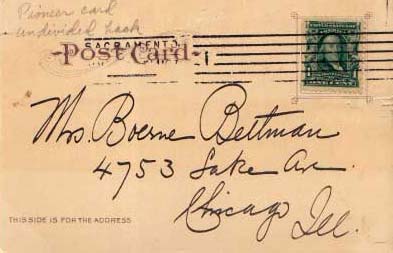 Pioneer card
undivided back
SACRAMENTO
Post Card
1
Mrs. Boerne Bettman
4753 Lake Ave.
Chicago Ill.
THIS SIDE IS FOR THE ADDRESS